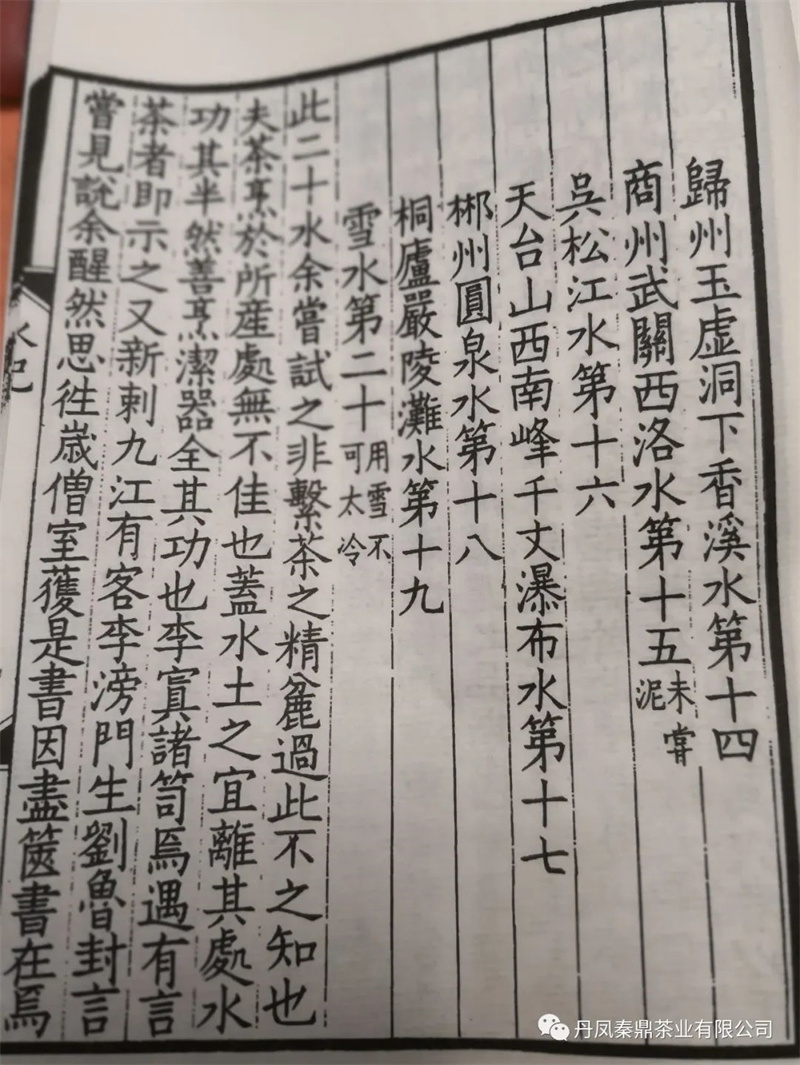 歸州玉虛洞下香溪水第十四
商州武關西洛水第十五未嘗泥
吳松江水第十六
天台山西南峰千丈瀑布水第十七
郴州圓泉水第十八
桐廬嚴陵灘水第十九
雪水第二十用雪不可太冷
此二十水余嘗試之非繫茶之精麄過此不之知也
夫茶烹於所産處無不佳也蓋水土之宜離其處水
功其半然善烹潔器全其功也李寘諸笥焉遇有言
茶者即示之又新刺九江有客李滂門生劉魯封言
嘗見說余醒然思往歲僧室獲是書因盡篋書在焉
水記
丹凤秦鼎茶业有限公司